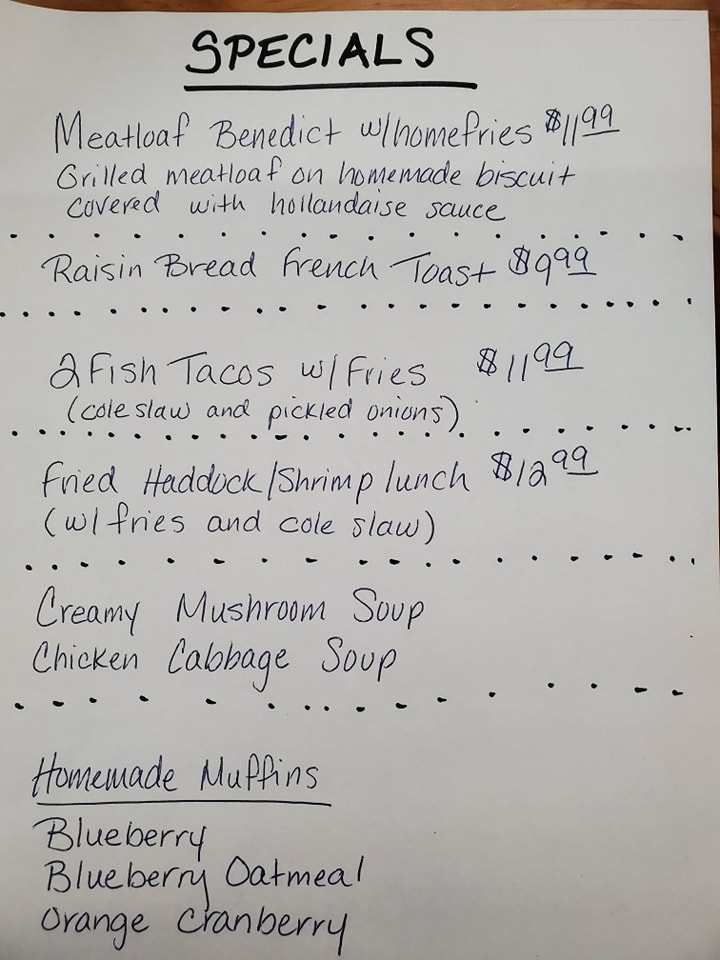 SPECIALS
Meatloaf Benedict w/homefries $11.99
Grilled meatloaf on homemade biscuit
covered with hollandaise sauce
Raisin Bread French Toast $9.99
2 Fish Tacos w/Fries $11.99
(cole slaw and pickled onions)
Fried Haddock/Shrimp lunch $12.99
(w/ fries and cole slaw)
Creamy Mushroom Soup
Chicken Cabbage Soup
Homemade Muffins
Blueberry
Blueberry Oatmeal
Orange Cranberry